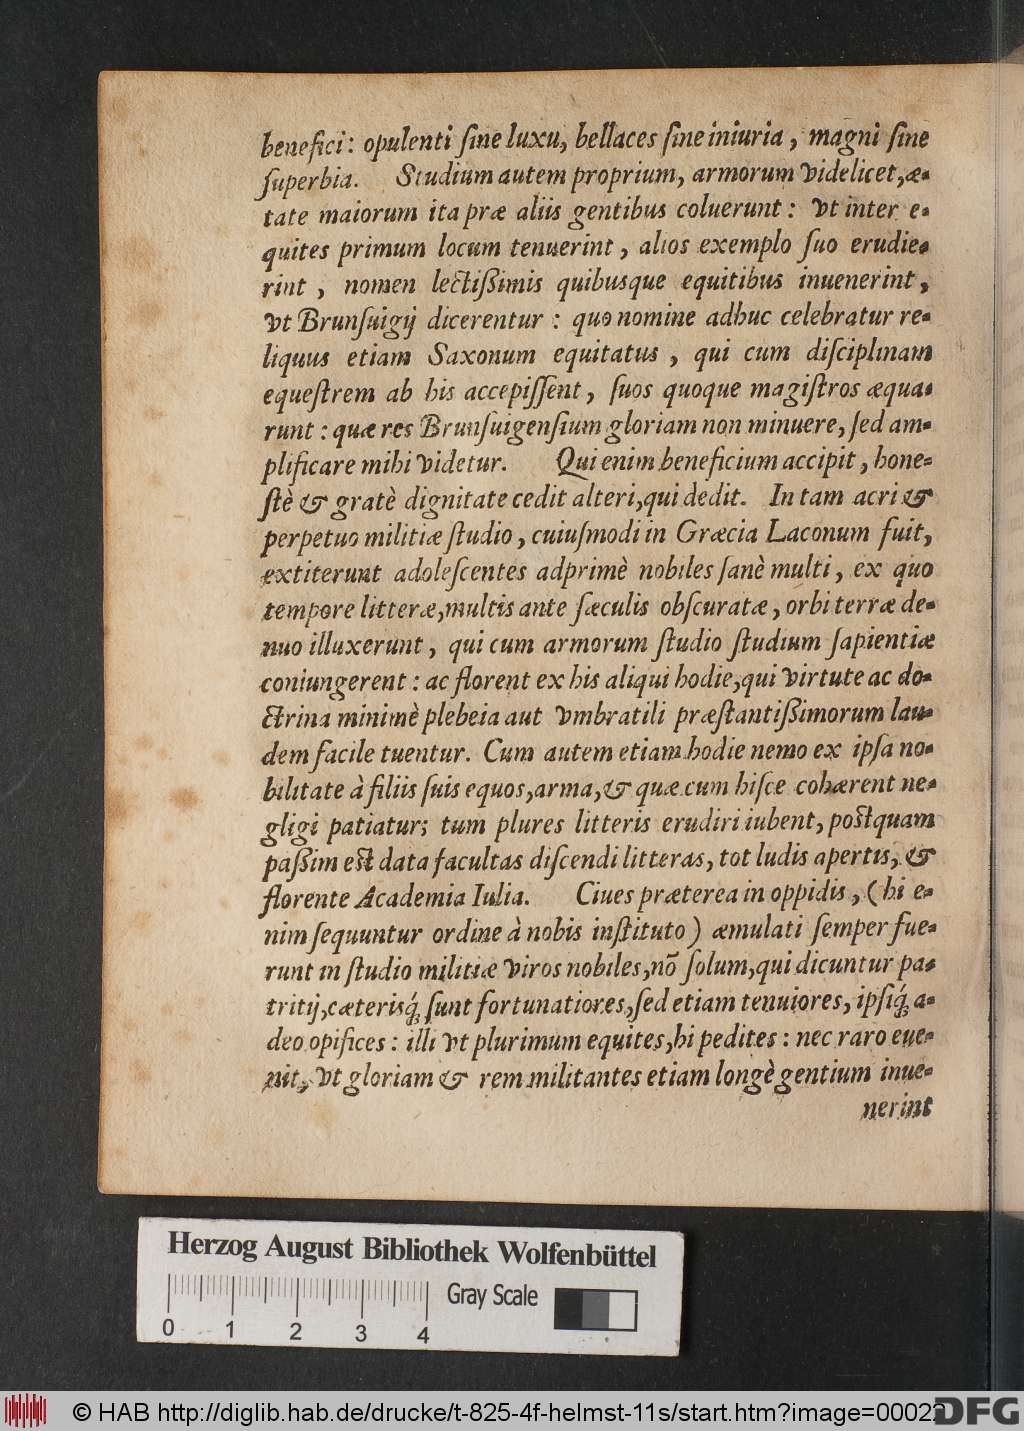 benefici: opulenti ſine luxu, bellaces ſine iniuria, magni ſine
ſuperbia. Studium autem proprium, armorum videlicet, æ-
tate maiorum ita præ aliis gentibus coluerunt: vt inter e-
quites primum locum tenuerint, alios exemplo ſuo erudie-
rint, nomen lectißimis quibusque equitibus inuenerint,
vt Brunſuigij dicerentur: quo nomine adhuc celebratur re-
liquus etiam Saxonum equitatus, qui cum diſciplinam
equeſtrem ab his accepiſſent, ſuos quoque magiſtros æqua-
runt: quæ res Brunſuigenſium gloriam non minuere, ſed am-
plificare mihi videtur. Qui enim beneficium accipit, hone-
ſtè & gratè dignitate cedit alteri, qui dedit. In tam acri &
perpetuo militiæ ſtudio, cuiuſmodi in Græcia Laconum fuit,
extiterunt adoleſcentes adprimè nobiles ſanè multi, ex quo
tempore litteræ, multis ante ſæculis obſcuratæ, orbi terræ de-
nuo illuxerunt, qui cum armorum ſtudio ſtudium ſapientiæ
coniungerent: ac florent ex his aliqui hodie, qui virtute ac do-
ctrina minimè plebeia aut vmbratili præſtantißimorum lau-
dem facile tuentur. Cum autem etiam hodie nemo ex ipſa no-
bilitate à filiis ſuis equos, arma, & quæ cum hiſce cohærent ne-
gligi patiatur; tum plures litteris erudiri iubent, poſtquam
paßim eſt data facultas diſcendi litteras, tot ludis apertis, &
florente Academia Iulia. Ciues præterea in oppidis, (hi e-
nim ſequuntur ordine à nobis inſtituto) æmulati ſemper fue-
runt in ſtudio militiæ viros nobiles, nõ ſolum, qui dicuntur pa-
tritij, cæterisq́; ſunt fortunatiores, ſed etiam tenuiores, ipſiq́; a-
deo opifices: illi vt plurimum equites, hi pedites: nec raro eue-
nit, vt gloriam & rem militantes etiam longè gentium inue-
nerint
Herzog August Bibliothek Wolfenbüttel
Gray Scale
0 1 2 3 4
© HAB http://diglib.hab.de/drucke/t-825-4f-helmst-11s/start.htm?image=00022
DFG